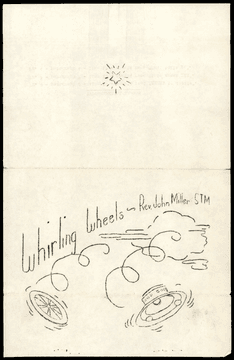 Whirling Wheels — Rev. John Miller STM